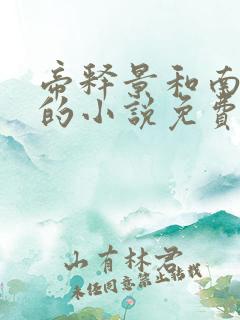 帝释景和南
的小说免费
山有林君
未经同意禁止转载